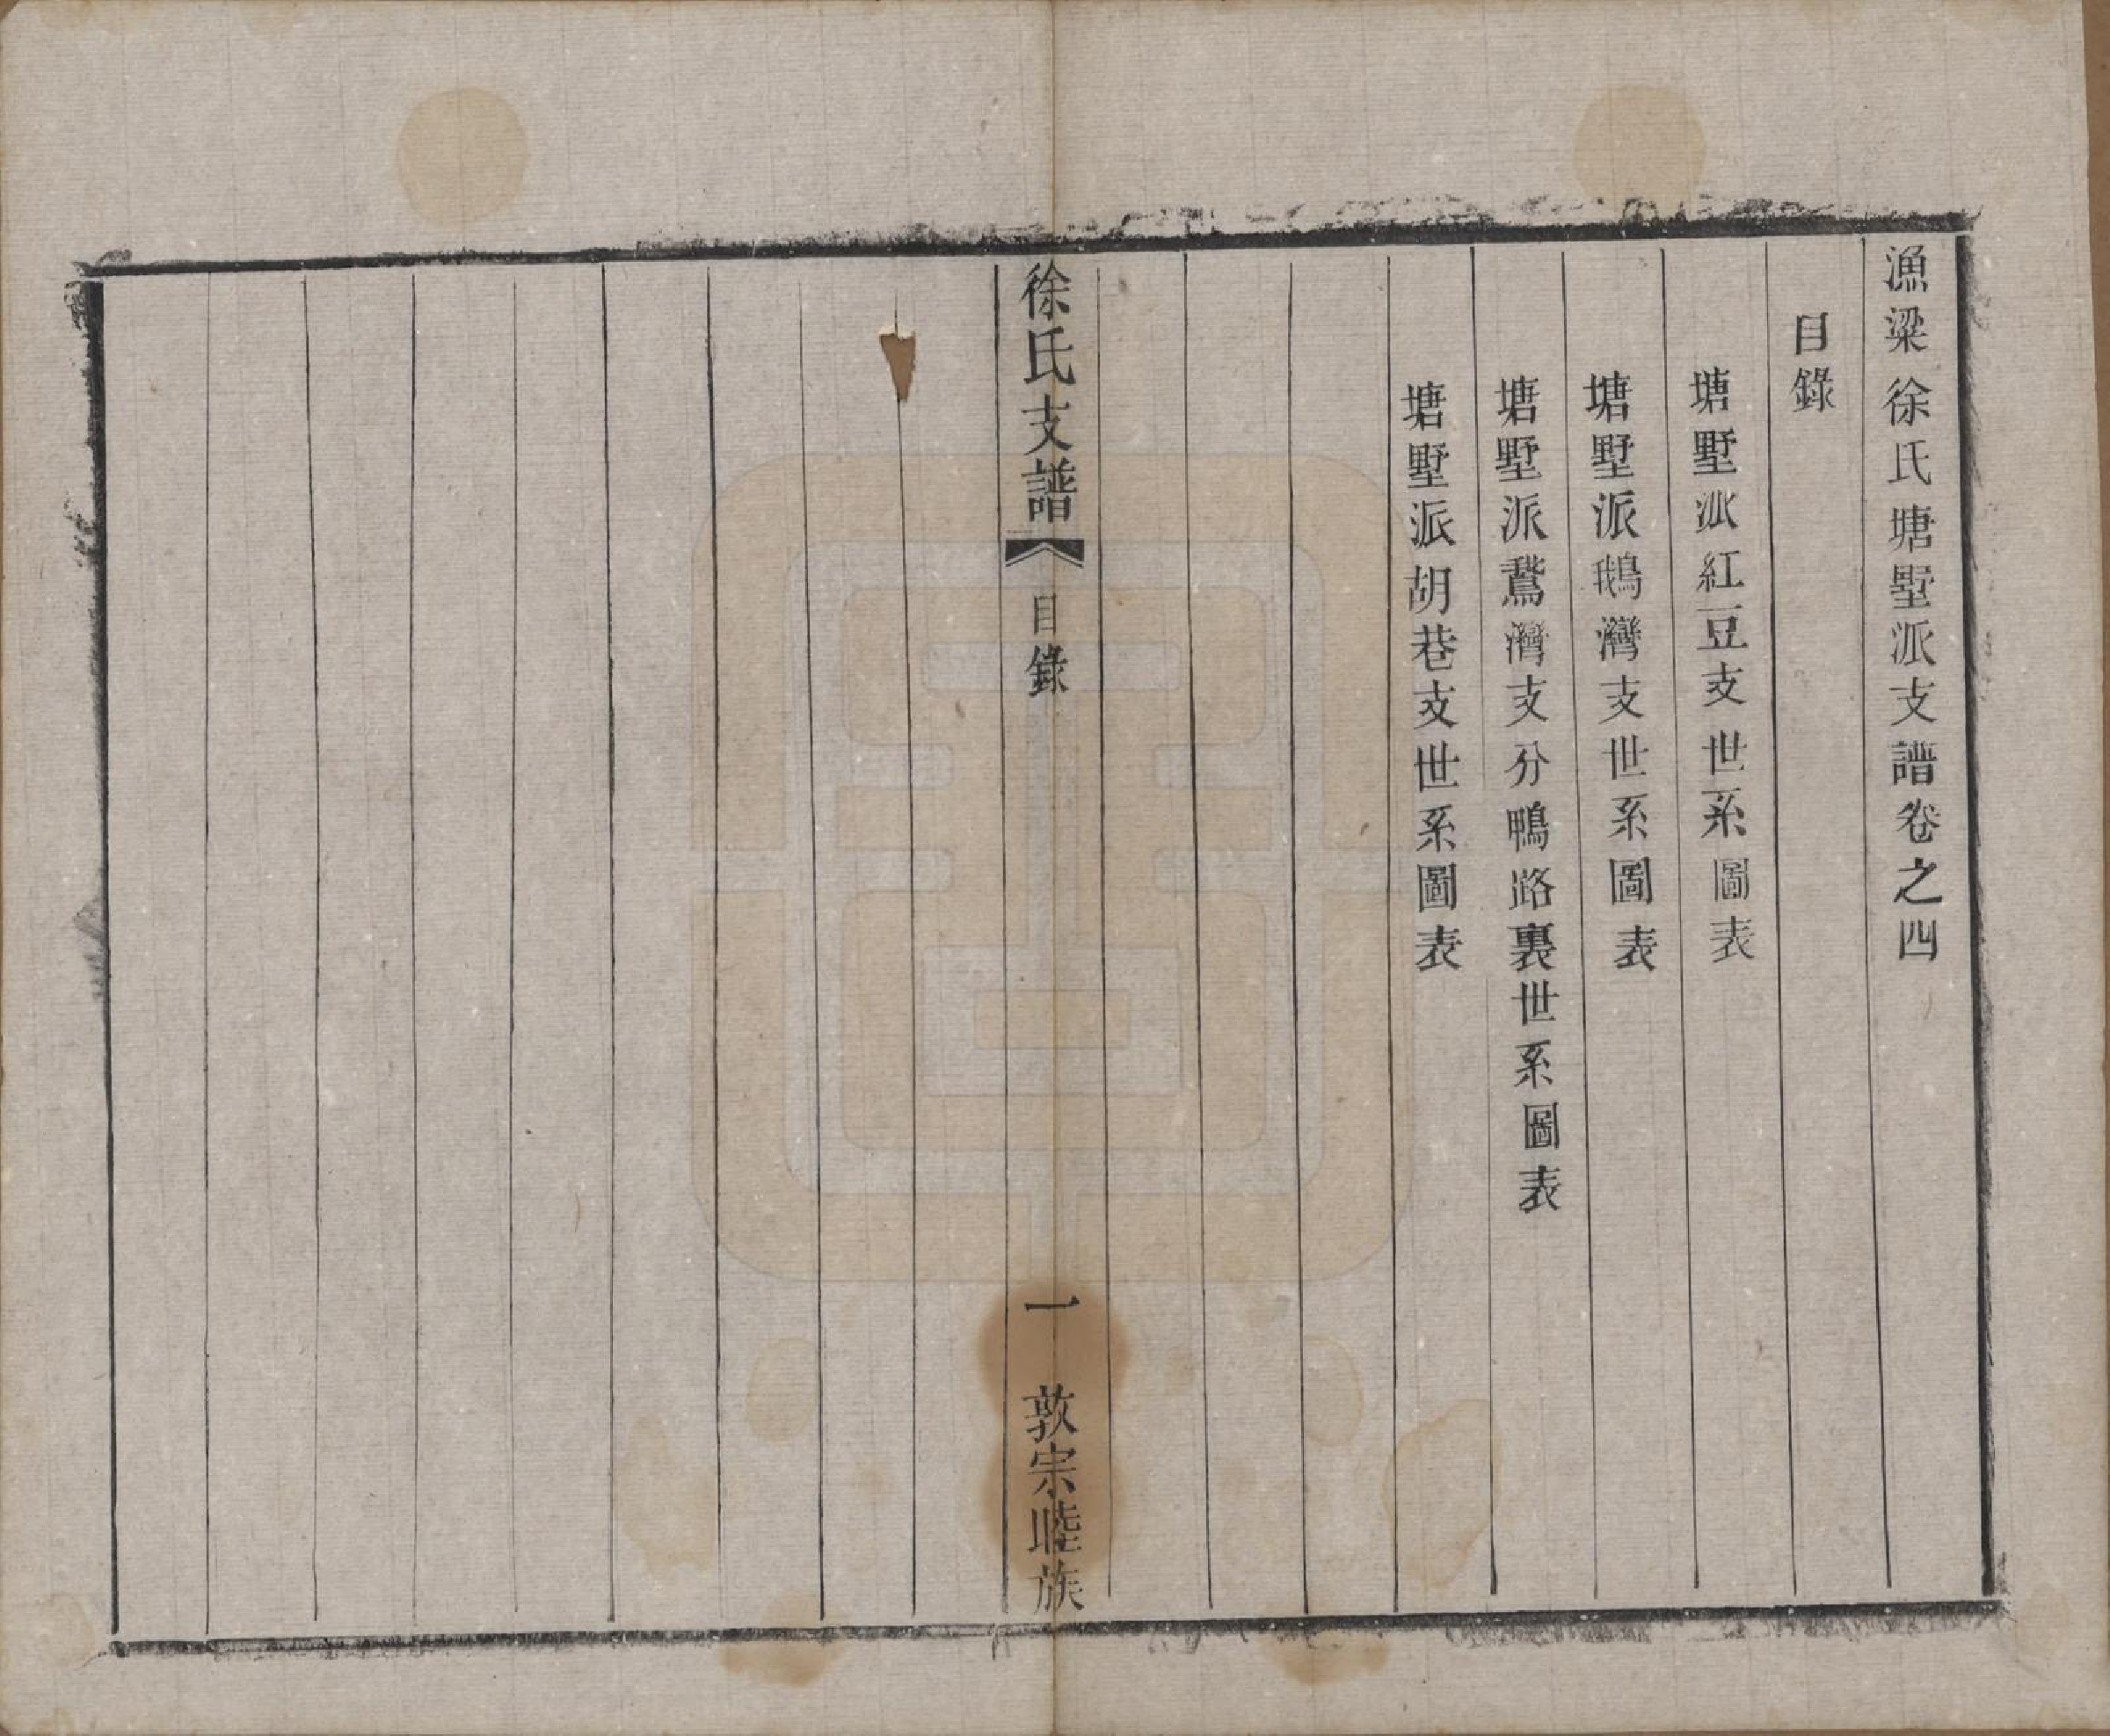 漁梁徐氏塘墅派支譜卷之四
目錄
塘墅派紅豆支世系圖表
塘墅派鵝灣支世系圖表
塘墅派鵞灣支分鴨路裏世系圖表
塘墅派胡巷支世系圖表
徐氏支譜 目錄 一 敦宗睦族